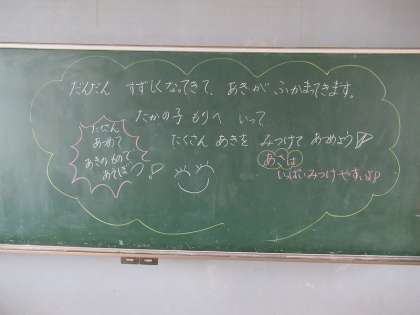 だんだん すずしくなってきて、あきが ふかまってきます。
たかの子 もりへ いって
たくさん あきを みつけて あつめよう!
たくさん
あつめて
あきのもので
あそぼう!
あさは
いっぱい みつけやすいよ!